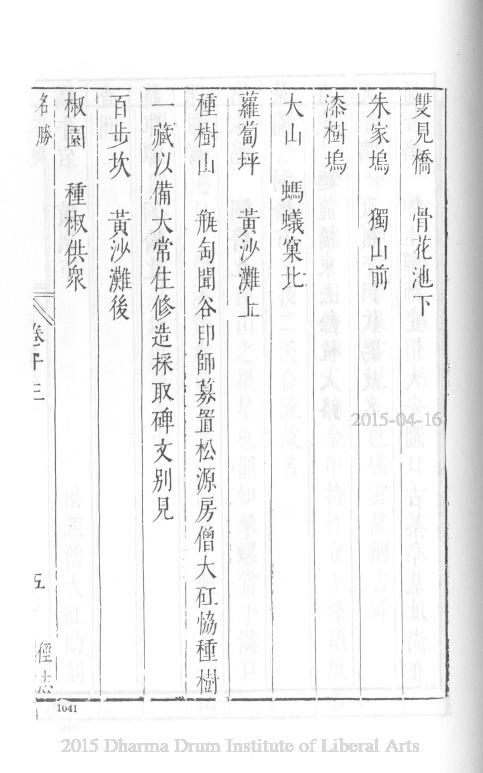 雙見橋　骨花池下
朱家塢　獨山前
漆樹塢
大山　螞蟻窠北
蘿蔔坪　黃沙灘上
種樹山　瓶匋聞谷印師募置松源房僧大矼恊種樹
一藏以備大常住修造採取碑文別見
百步坎　黃沙灘後
椒園　種椒供衆
名勝　卷十三　五　徑志
2015-04-16
1041
2015 Dharma Drum Institute of Liberal Arts